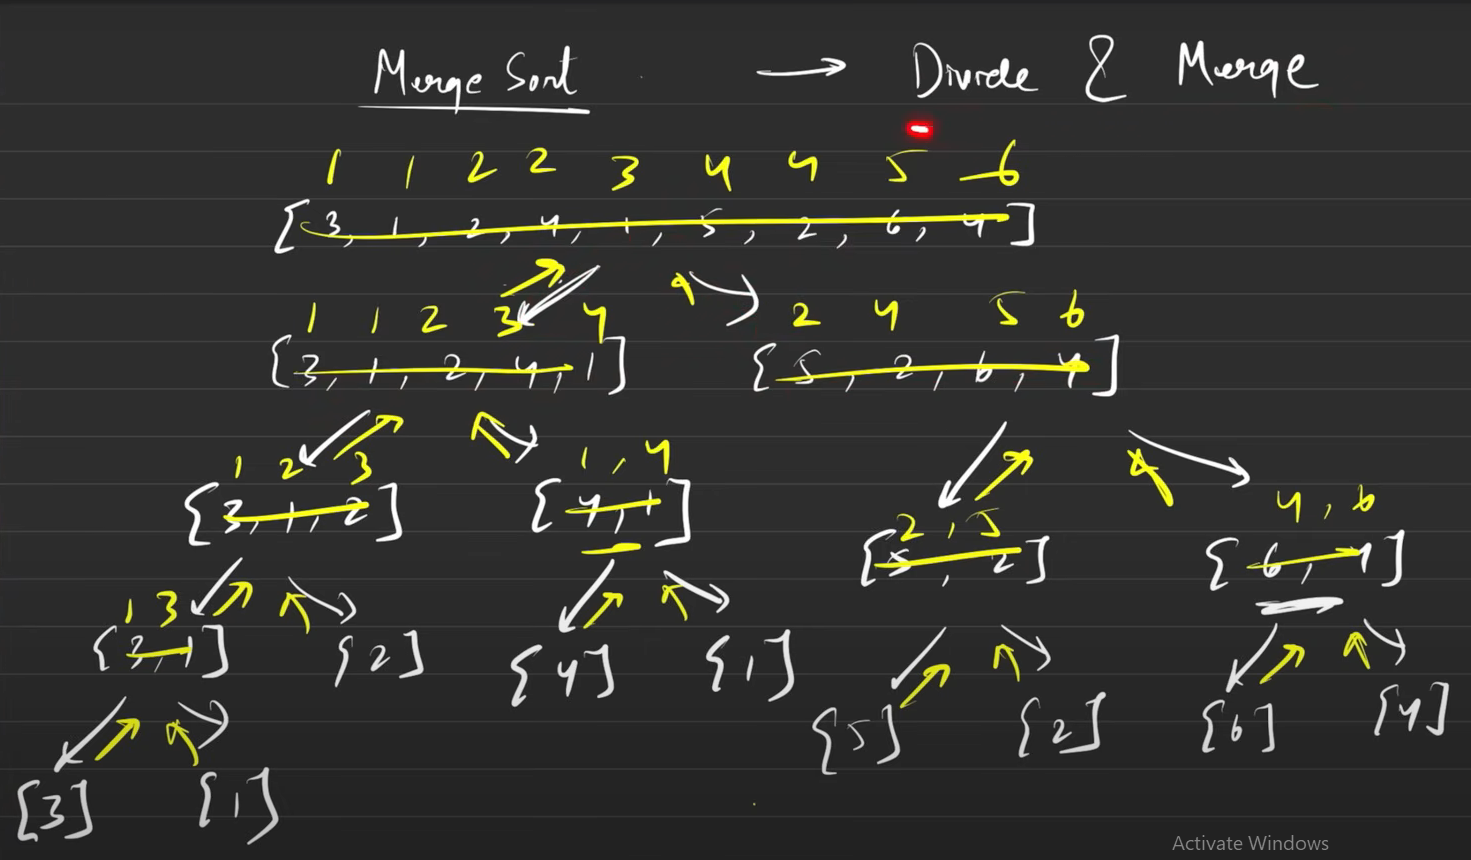 Merge Sort → Divide & Merge
1 1 2 2 3 4 4 5 6
[3, 1, 2, 4, 1, 5, 2, 6, 4]
1 1 2 3 4 2 4 5 6
[3, 1, 2, 4, 1] [5, 2, 6, 4]
1 2 3 1, 4
[3, 1, 2] [4, 1]
2, 5 4, 6
[5, 2] [6, 4]
1 3
[3, 1] [2] [4] [1]
[5] [2] [6] [4]
[3] [1]
Activate Windows